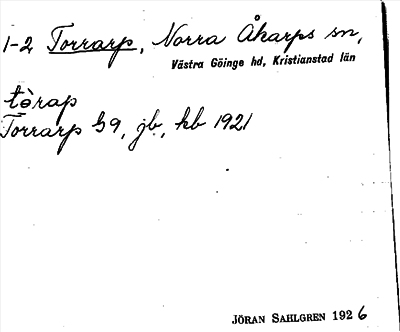 1-2 Torrarp, Norra Åkarps sn,
Västra Göinge hd, Kristianstad län
tòrap
Torrarp G9, jb, kb 1921
JÖRAN SAHLGREN 1926